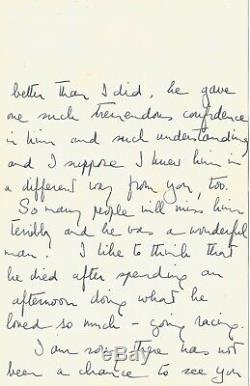 better than I did, he gave
me such tremendous confidence
in him and such understanding
and I suppose I knew him in
a different way from you, too.
So many people will miss him
terribly and he was a wonderful
man. I like to think that
he died after spending an
afternoon doing what he
loved so much – going racing.
I am sorry there has not
been a chance to see you